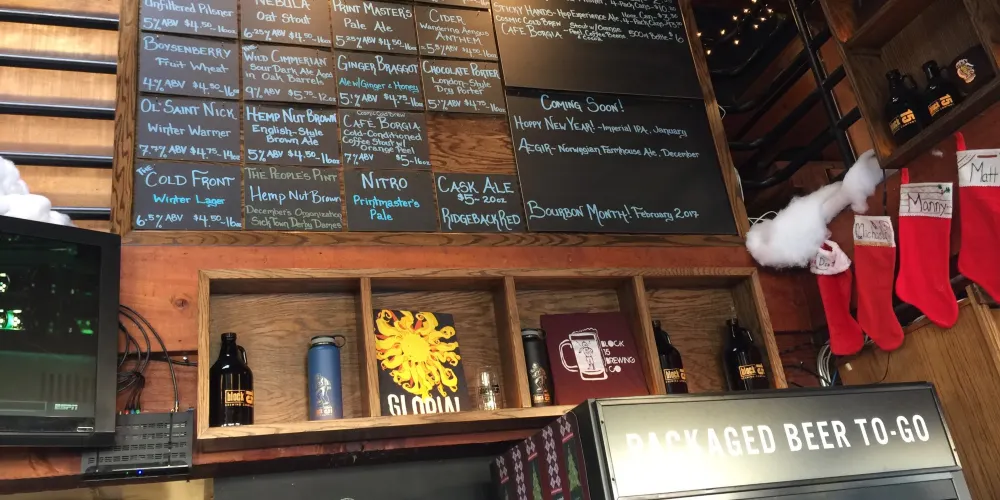 Unfiltered Pilsner
5%ABV $4.50-16oz
NEBULA
Oat Stout
PRINT MASTER'S
Pale Ale
5.25%ABV $4.50
CIDER
Wandering Aengus
ANTHEM
STICKY HANDS-Hop Experience Ale
COSMIC COLD BREW
CAFE BORGIA
BOYSENBERRY
Fruit Wheat
4%ABV $4.50-16oz
THE WILD CIMMERIAN
Sour Dark Ale Aged
in Oak Barrels
9%ABV $5.75-12oz
GINGER BRAGGOT
Ale w/Ginger & Honey
CHOCOLATE PORTER
London-Style
Dry Porter
OL' SAINT NICK
Winter Warmer
7.7%ABV $4.75-14oz
HEMP NUT BROWN
English-Style
Brown Ale
5%ABV $4.50-16oz
CAFE BORGIA
Cold-Conditioned
Coffee Stout w/
Orange Peel
7%ABV $5-16oz
THE COLD FRONT
Winter Lager
6.5%ABV $4.50-16oz
THE PEOPLE'S PINT
Hemp Nut Brown
December's Organization
Sick Town Derby Dames
NITRO
Printmaster's
Pale
CASK ALE
$5-20oz
RIDGEBACK RED
COMING SOON!
HOPPY NEW YEAR!-Imperial IPA, January
AEGIR-Norwegian Farmhouse Ale, December
BOURBON MONTH! February 2017
Michaela
Manny
Matt
GLORIA!
BLOCK
15
BREWING
CO
block 15
block 15
block 15
ESPN
PACKAGED BEER TO-GO